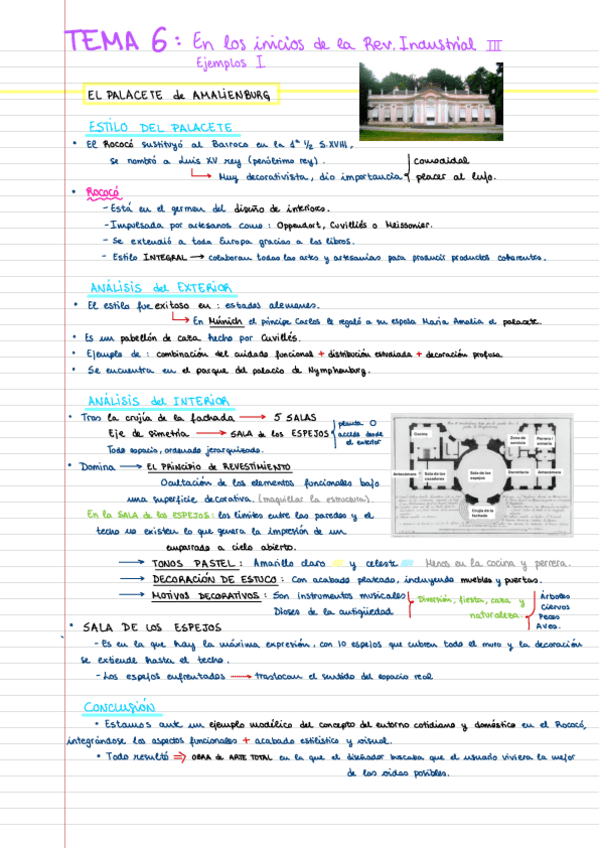 TEMA 6: En los inicios de la Rev. Industrial III
Ejemplos I
EL PALACETE de AMALIENBURG
ESTILO DEL PALACETE
• El Rococó sustituyó al Barroco en la 1ª 1/2 S.XVIII,
se nombró a Luis XV rey (penúltimo rey).
Muy decorativista, dio importancia
comodidad
placer al lujo.
• Rococó
- Está en el germen del diseño de interiores.
- Impulsada por artesanos como: Oppendort, Cuvilliés o Meissonier.
- Se extendió a toda Europa gracias a los libros.
- Estilo INTEGRAL → colaboran todas las artes y artesanías para producir productos coherentes.
ANÁLISIS del EXTERIOR
• El estilo fue exitoso en: estados alemanes.
En Múnich el príncipe Carlos le regaló a su esposa Maria Amalia el palacete.
• Es un pabellón de caza hecho por Cuvillés.
• Ejemplo de: combinación del cuidado funcional + distribución estudiada + decoración profusa.
• Se encuentra en el parque del palacio de Nymphenburg.
ANÁLISIS del INTERIOR
• Tras la crujía de la fachada → 5 SALAS
Eje de simetría → SALA de los ESPEJOS
planta O
acceso desde
el exterior
Todo espacio, ordenado jerarquizado.
• Domina → EL PRINCIPIO de REVESTIMIENTO
Ocultación de los elementos funcionales bajo
una superficie decorativa. (maquillar la estructura).
En la SALA de los ESPEJOS: los límites entre las paredes y el
techo no existen lo que genera la impresión de un
emparrado a cielo abierto.
Cocina
Zona de servicio
Perrera / armería
Antecámara
Sala de los cazadores
Sala de los espejos
Dormitorio
Antecámara
Crujía de la fachada
→ TONOS PASTEL: Amarillo claro y celeste Menos en la cocina y perrera.
→ DECORACIÓN DE ESTUCO: Con acabado plateado, incluyendo muebles y puertas.
→ MOTIVOS DECORATIVOS: Son instrumentos musicales
Dioses de la antigüedad
Diversión, fiesta, caza y
naturaleza.
Árboles
Ciervos
Peces
Aves.
• SALA DE LOS ESPEJOS
- Es en la que hay la máxima expresión, con 10 espejos que cubren todo el muro y la decoración
se extiende hasta el techo.
- Los espejos enfrentados → trastocan el sentido del espacio real
CONCLUSIÓN
• Estamos ante un ejemplo modélico del concepto del entorno cotidiano y doméstico en el Rococó,
integrándose los aspectos funcionales + acabado estilístico y visual.
• Todo resultó ⇒ OBRA de ARTE TOTAL en la que el diseñador buscaba que el usuario viviera la mejor
de las vidas posibles.